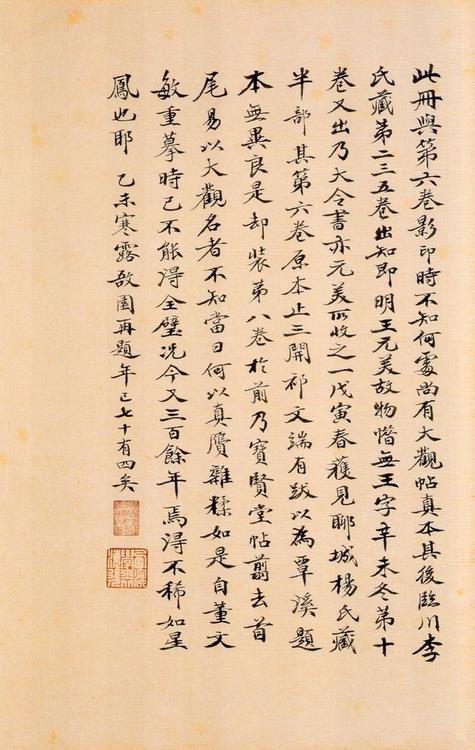 此冊與第六卷影印時不知何處尚有大觀帖真本其後臨川李
氏藏第二三五卷出知即明王元美故物惜無王字辛未冬第十
卷又出乃大令書亦元美所收之一戊寅春獲見聊城楊氏藏
半部其第六卷原本止三開祁文端有跋以為覃溪題
本無異良是却裝第八卷於前乃寶賢堂帖翦去首
尾易以大觀名者不知當日何以真贗雜糅如是自董文
敏重摹時已不能得全璧況今又三百餘年焉得不稀如星
鳳也耶 乙未寒露敔園再題年已七十有四矣